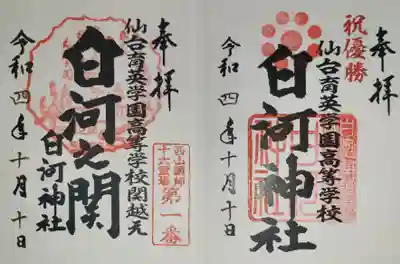 奉拝
仙台育英学園高等学校関越え
白河之関
白河神社
令和四年十月十日
西山國師
十六霊場
第一番
奉拝
祝優勝
仙台育英学園高等学校
白河神社
令和四年十月十日